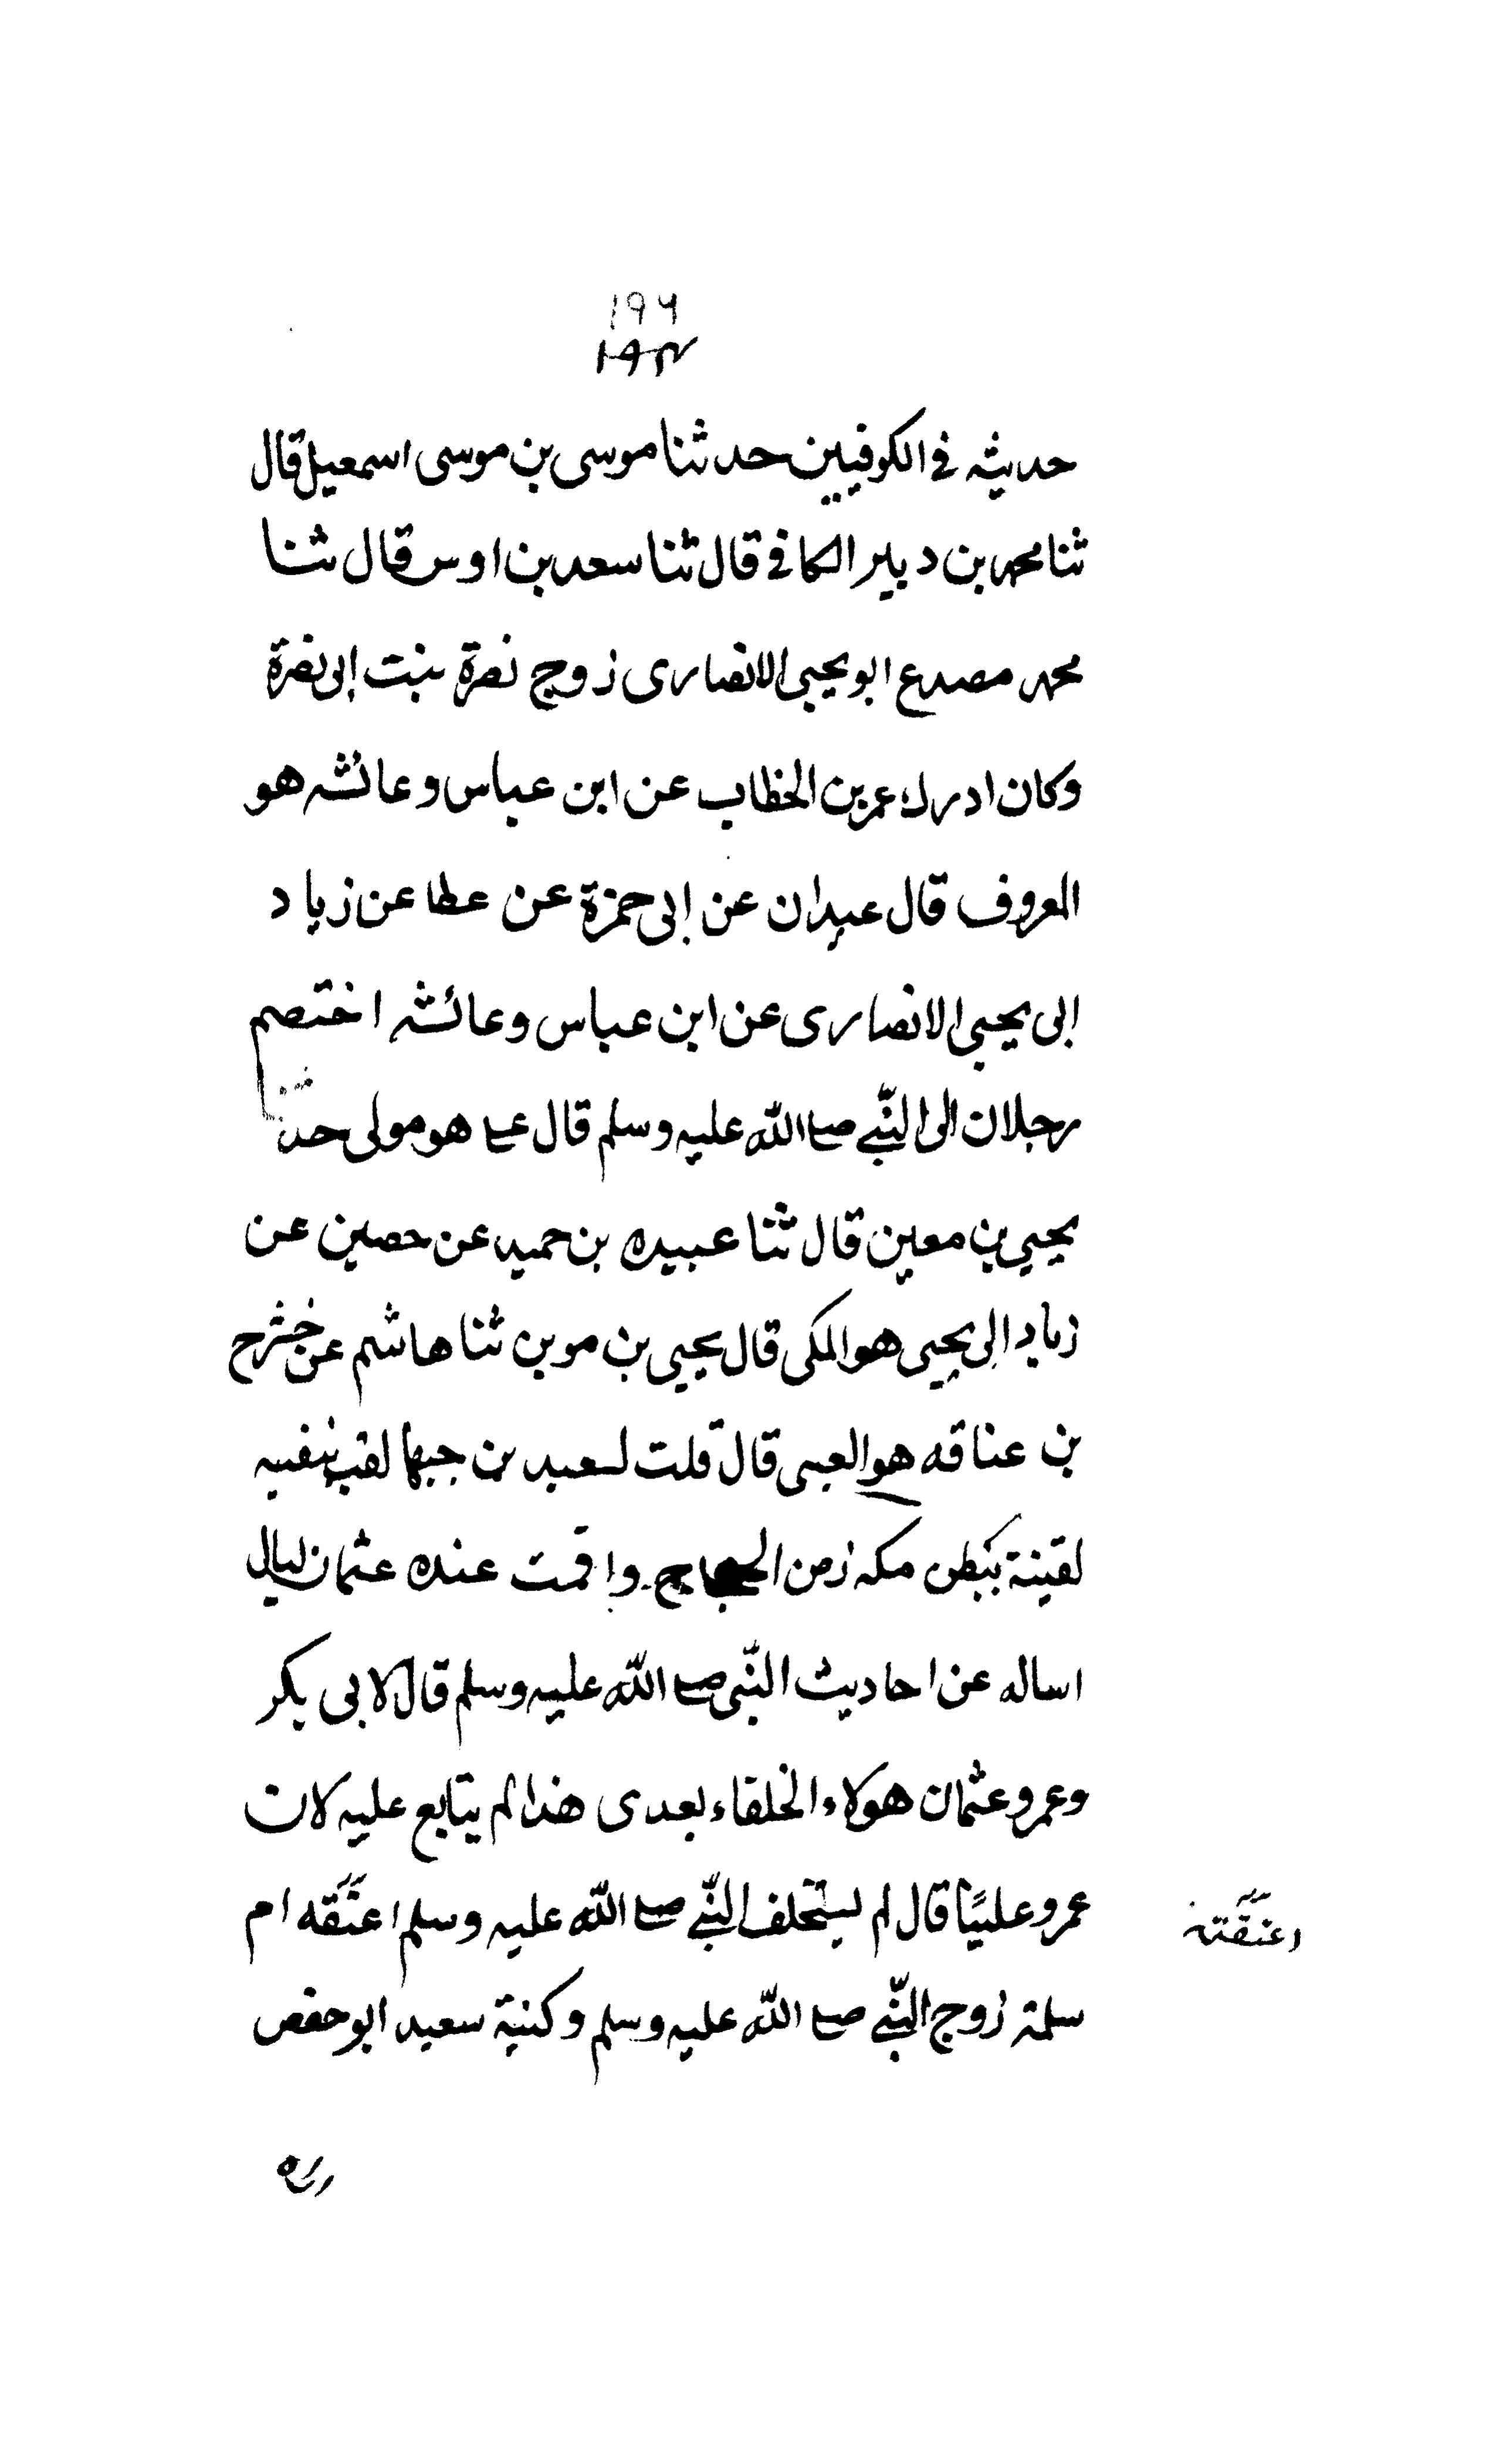 ۱۹۶
حديثه في الكوفيين حدثنا موسى بن موسى اسمعيل قال
ثنا محمد بن دينر الكافي قال ثنا سعد بن اوس قال ثنا
محمد مصدع ابو يحيى الانصارى زوج نصرة بنت ابى نصرة
وكان ادرك عمر بن الخظاب عن ابن عباس وعائشه هو
المعروف قال عبدان عن ابى حمزة عن عطا عن زياد
ابى يحيى الانصارى عن ابن عباس وعائشه اختصم
رجلان الى النبي صلى الله عليه وسلم قال على هو مولى حدثنا
يحيى بن معين قال ثنا عبيده بن حميد عن حصين عن
زياد ابى يحيى هو المكى قال يحيى بن موين ثنا هاشم عن خشرج
بن عناقه هو العبى قال قلت لسعيد بن جبها لقب بنفسه
لقينة ببطن مكه زمن الحجاج واقمت عنده عثمان ليالى
اساله عن احاديث النبى صلى الله عليه وسلم قال لابى بكر
وعمر وعثمان هولاء الخلفاء بعدى هذا لم يتابع عليه لان
عمر وعليًا قال لم يستخلف النبي صلى الله عليه وسلم اعتقه ام
اعتقته
سلمة زوج النبي صلى الله عليه وسلم وكنية سعيد ابو حفص